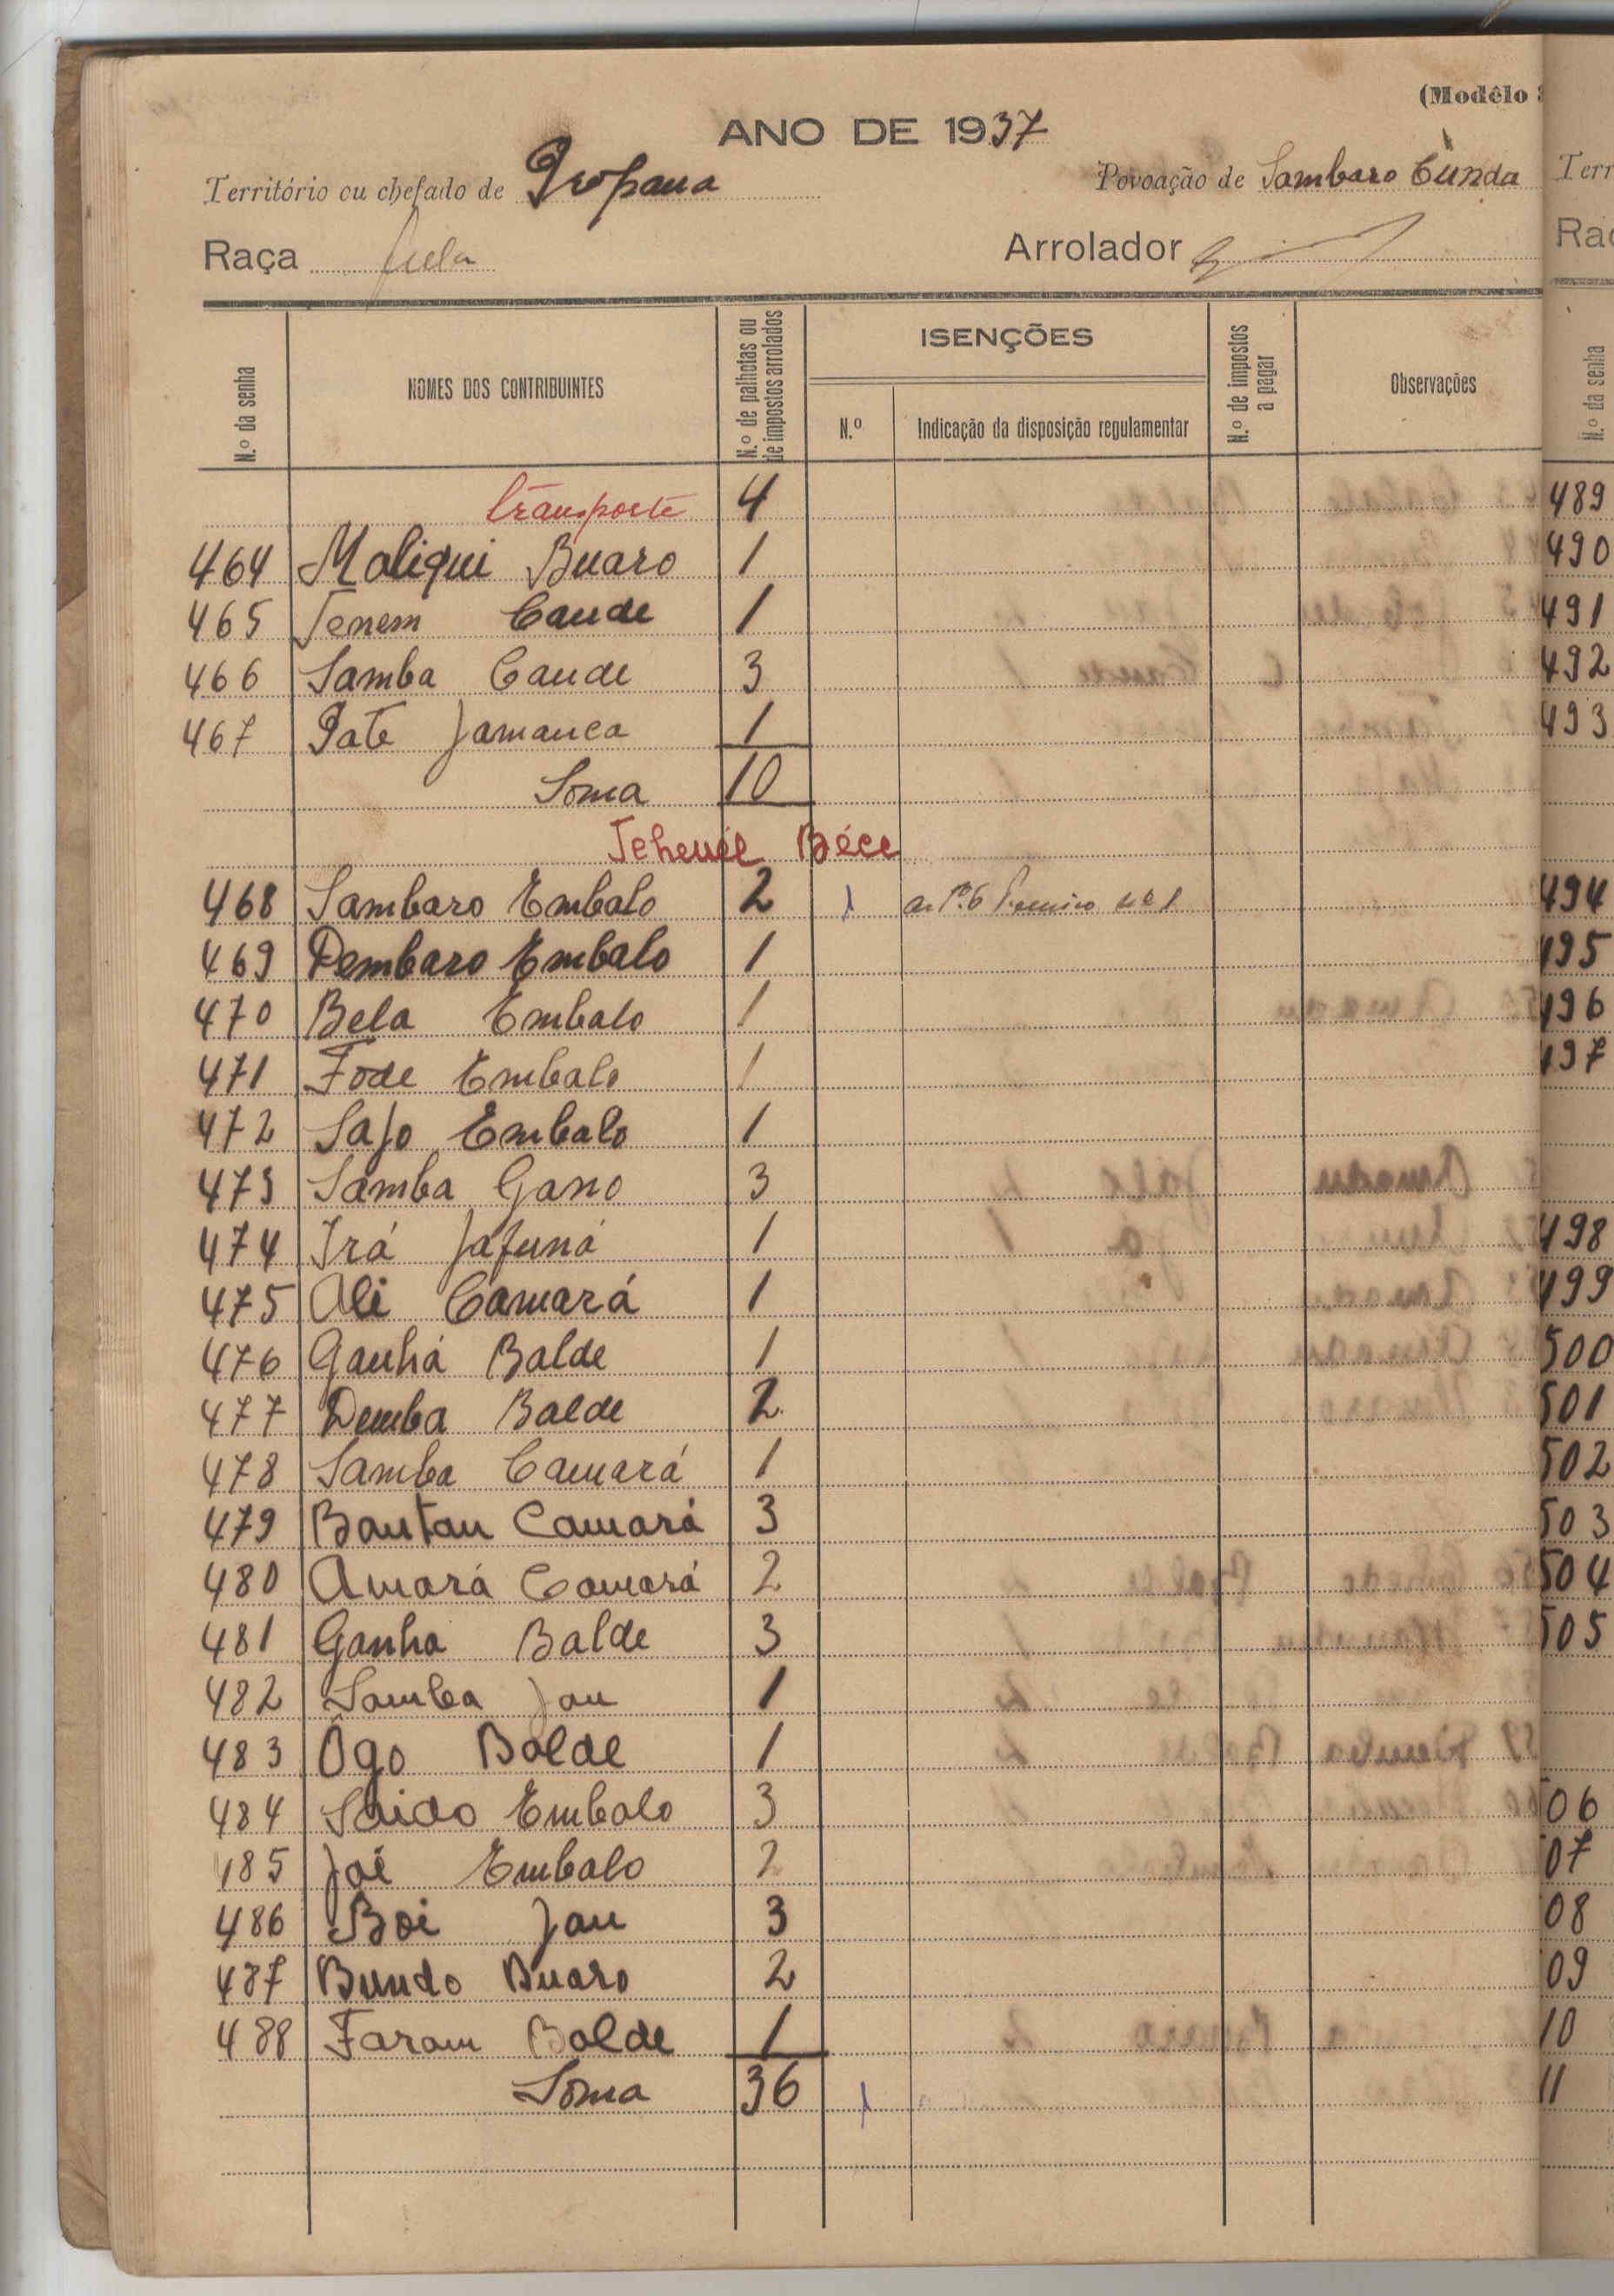 (Modêlo
ANO DE 1937
Território ou chefado de Propana Povoação de Sambaro Cunda
Raça fula Arrolador
N.º da senha NOMES DOS CONTRIBUINTES N.º de palhotas ou de impostos arrolados ISENÇÕES N.º de impostos a pagar Observações
N.º Indicação da disposição regulamentar
Transporte 4
464 Maliqui Buaro 1
465 Tenem Cande 1
466 Samba Cande 3
467 Pate Jamanca 1
Soma 10
Béce
468 Sambaro Embalo 2 1
469 Dembaro Embalo 1
470 Bela Embalo 1
471 Fode Embalo 1
472 Sajo Embalo 1
473 Samba Gano 3
474 Irá Jafuná 1
475 Ali Camará 1
476 Ganhá Balde 1
477 Demba Balde 2
478 Samba Camará 1
479 Bantan Camará 3
480 Amará Camará 2
481 Ganha Balde 3
482 Samba Jau 1
483 Ôgo Balde 1
484 Saido Embalo 3
485 Jaé Embalo 2
486 Boi Jau 3
487 Bundo Buaro 2
488 Faram Balde 1
Soma 36 1
Terr
Raç
N.º da senha
489
490
491
492
493
494
495
496
497
498
499
500
501
502
503
504
505
06
07
08
09
10
11